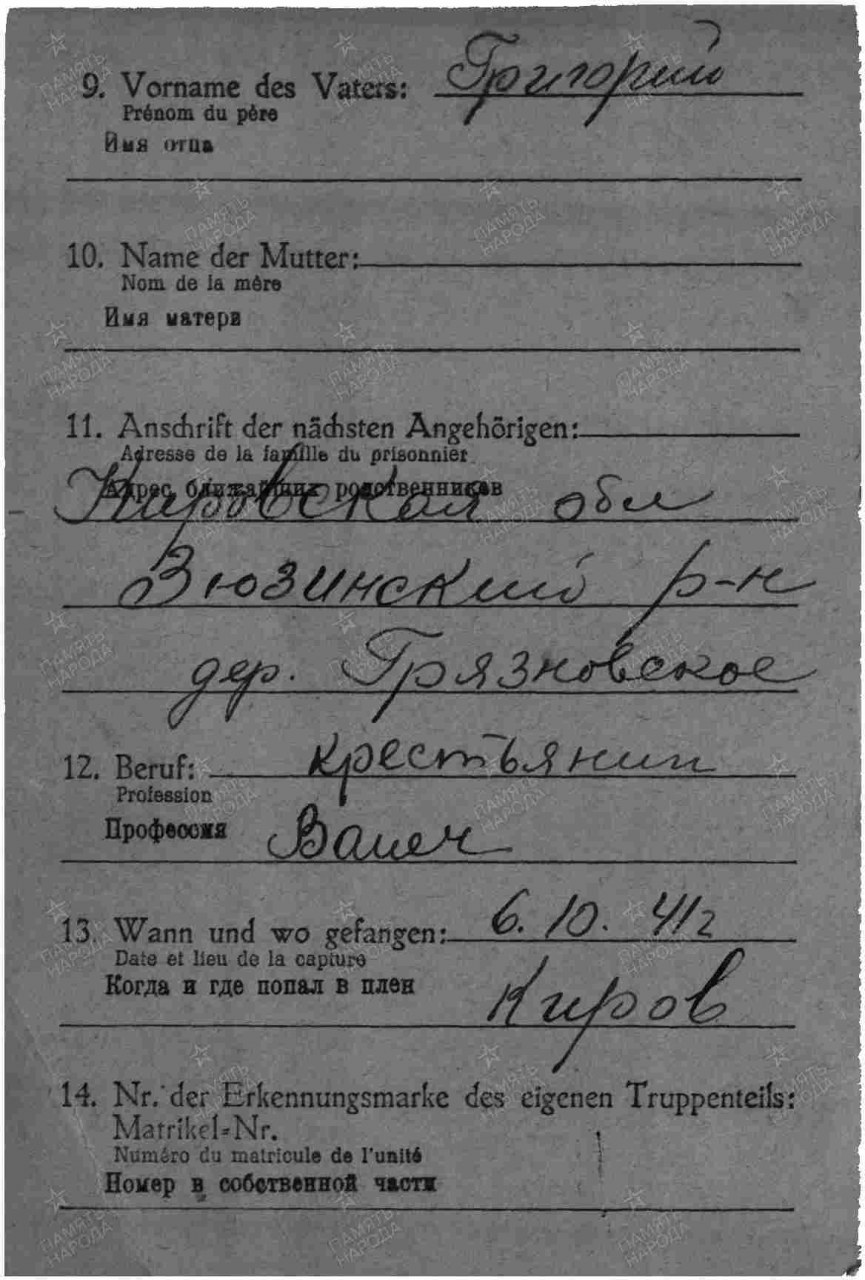 9. Vorname des Vaters: Григорий
Prénom du père
Имя отца
10. Name der Mutter:
Nom de la mère
Имя матери
11. Anschrift der nächsten Angehörigen:
Adresse de la famille du prisonnier
Адрес ближайших родственников
Кировская обл
Зюзинский р-н
дер. Грязновское
12. Beruf: крестьянин
Profession
Профессия Bauer
13. Wann und wo gefangen: 6. 10. 41г
Date et lieu de la capture
Когда и где попал в плен
Киров
14. Nr. der Erkennungsmarke des eigenen Truppenteils:
Matrikel-Nr.
Numéro du matricule de l'unité
Номер в собственной части
ПАМЯТЬ НАРОДА